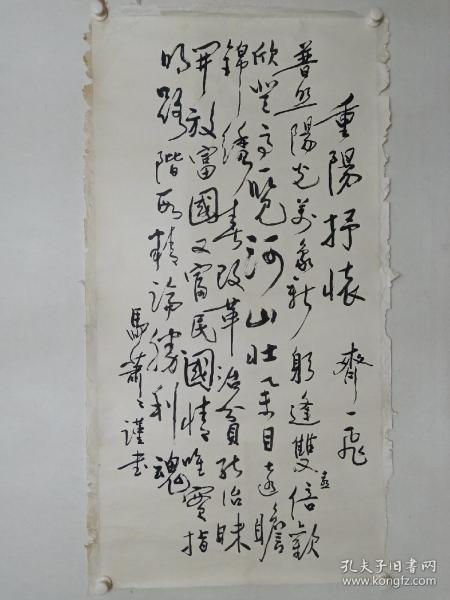 重陽抒懷 齊一飛
普照陽光萬象新躬逢雙喜倍歡
欣登高一覽河山壯目遠瞻
錦繡春改革治貧能治昧
開放富國又富民國情唯實指
明路階段精論勝利魂
馬蕭蕭謹書
孔夫子旧书网
www.kongfz.com